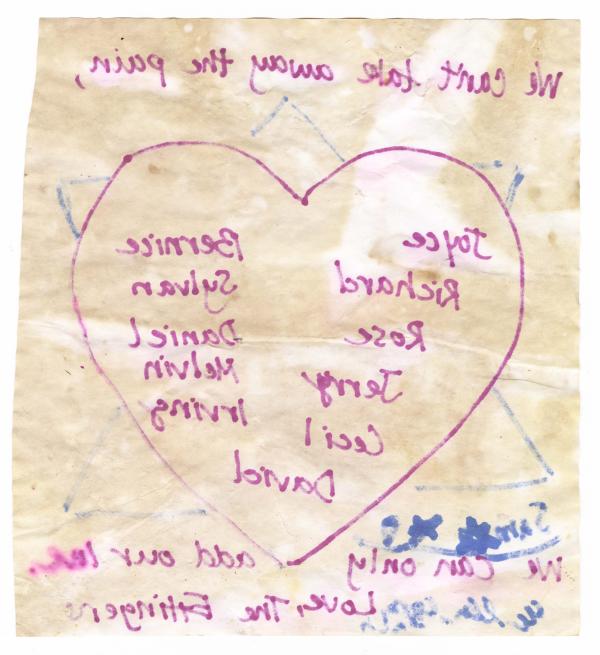 We can't take away the pain,
Joyce Bernice
Richard Sylvan
Rose Daniel
Melvin
Jerry Irving
Cecil
David
We can only add our love.
Love, The Ettingers